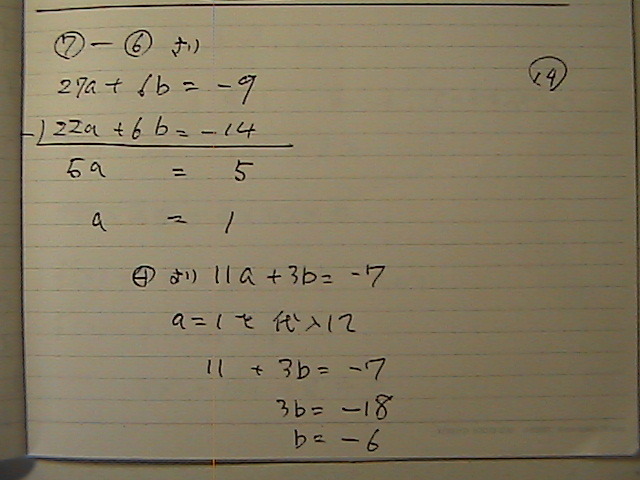 ⑦-⑥ より
⑲
27a+6b=-9
-)22a+6b=-14
5a = 5
a = 1
④より 11a+3b=-7
a=1を代入して
11 + 3b=-7
3b=-18
b=-6